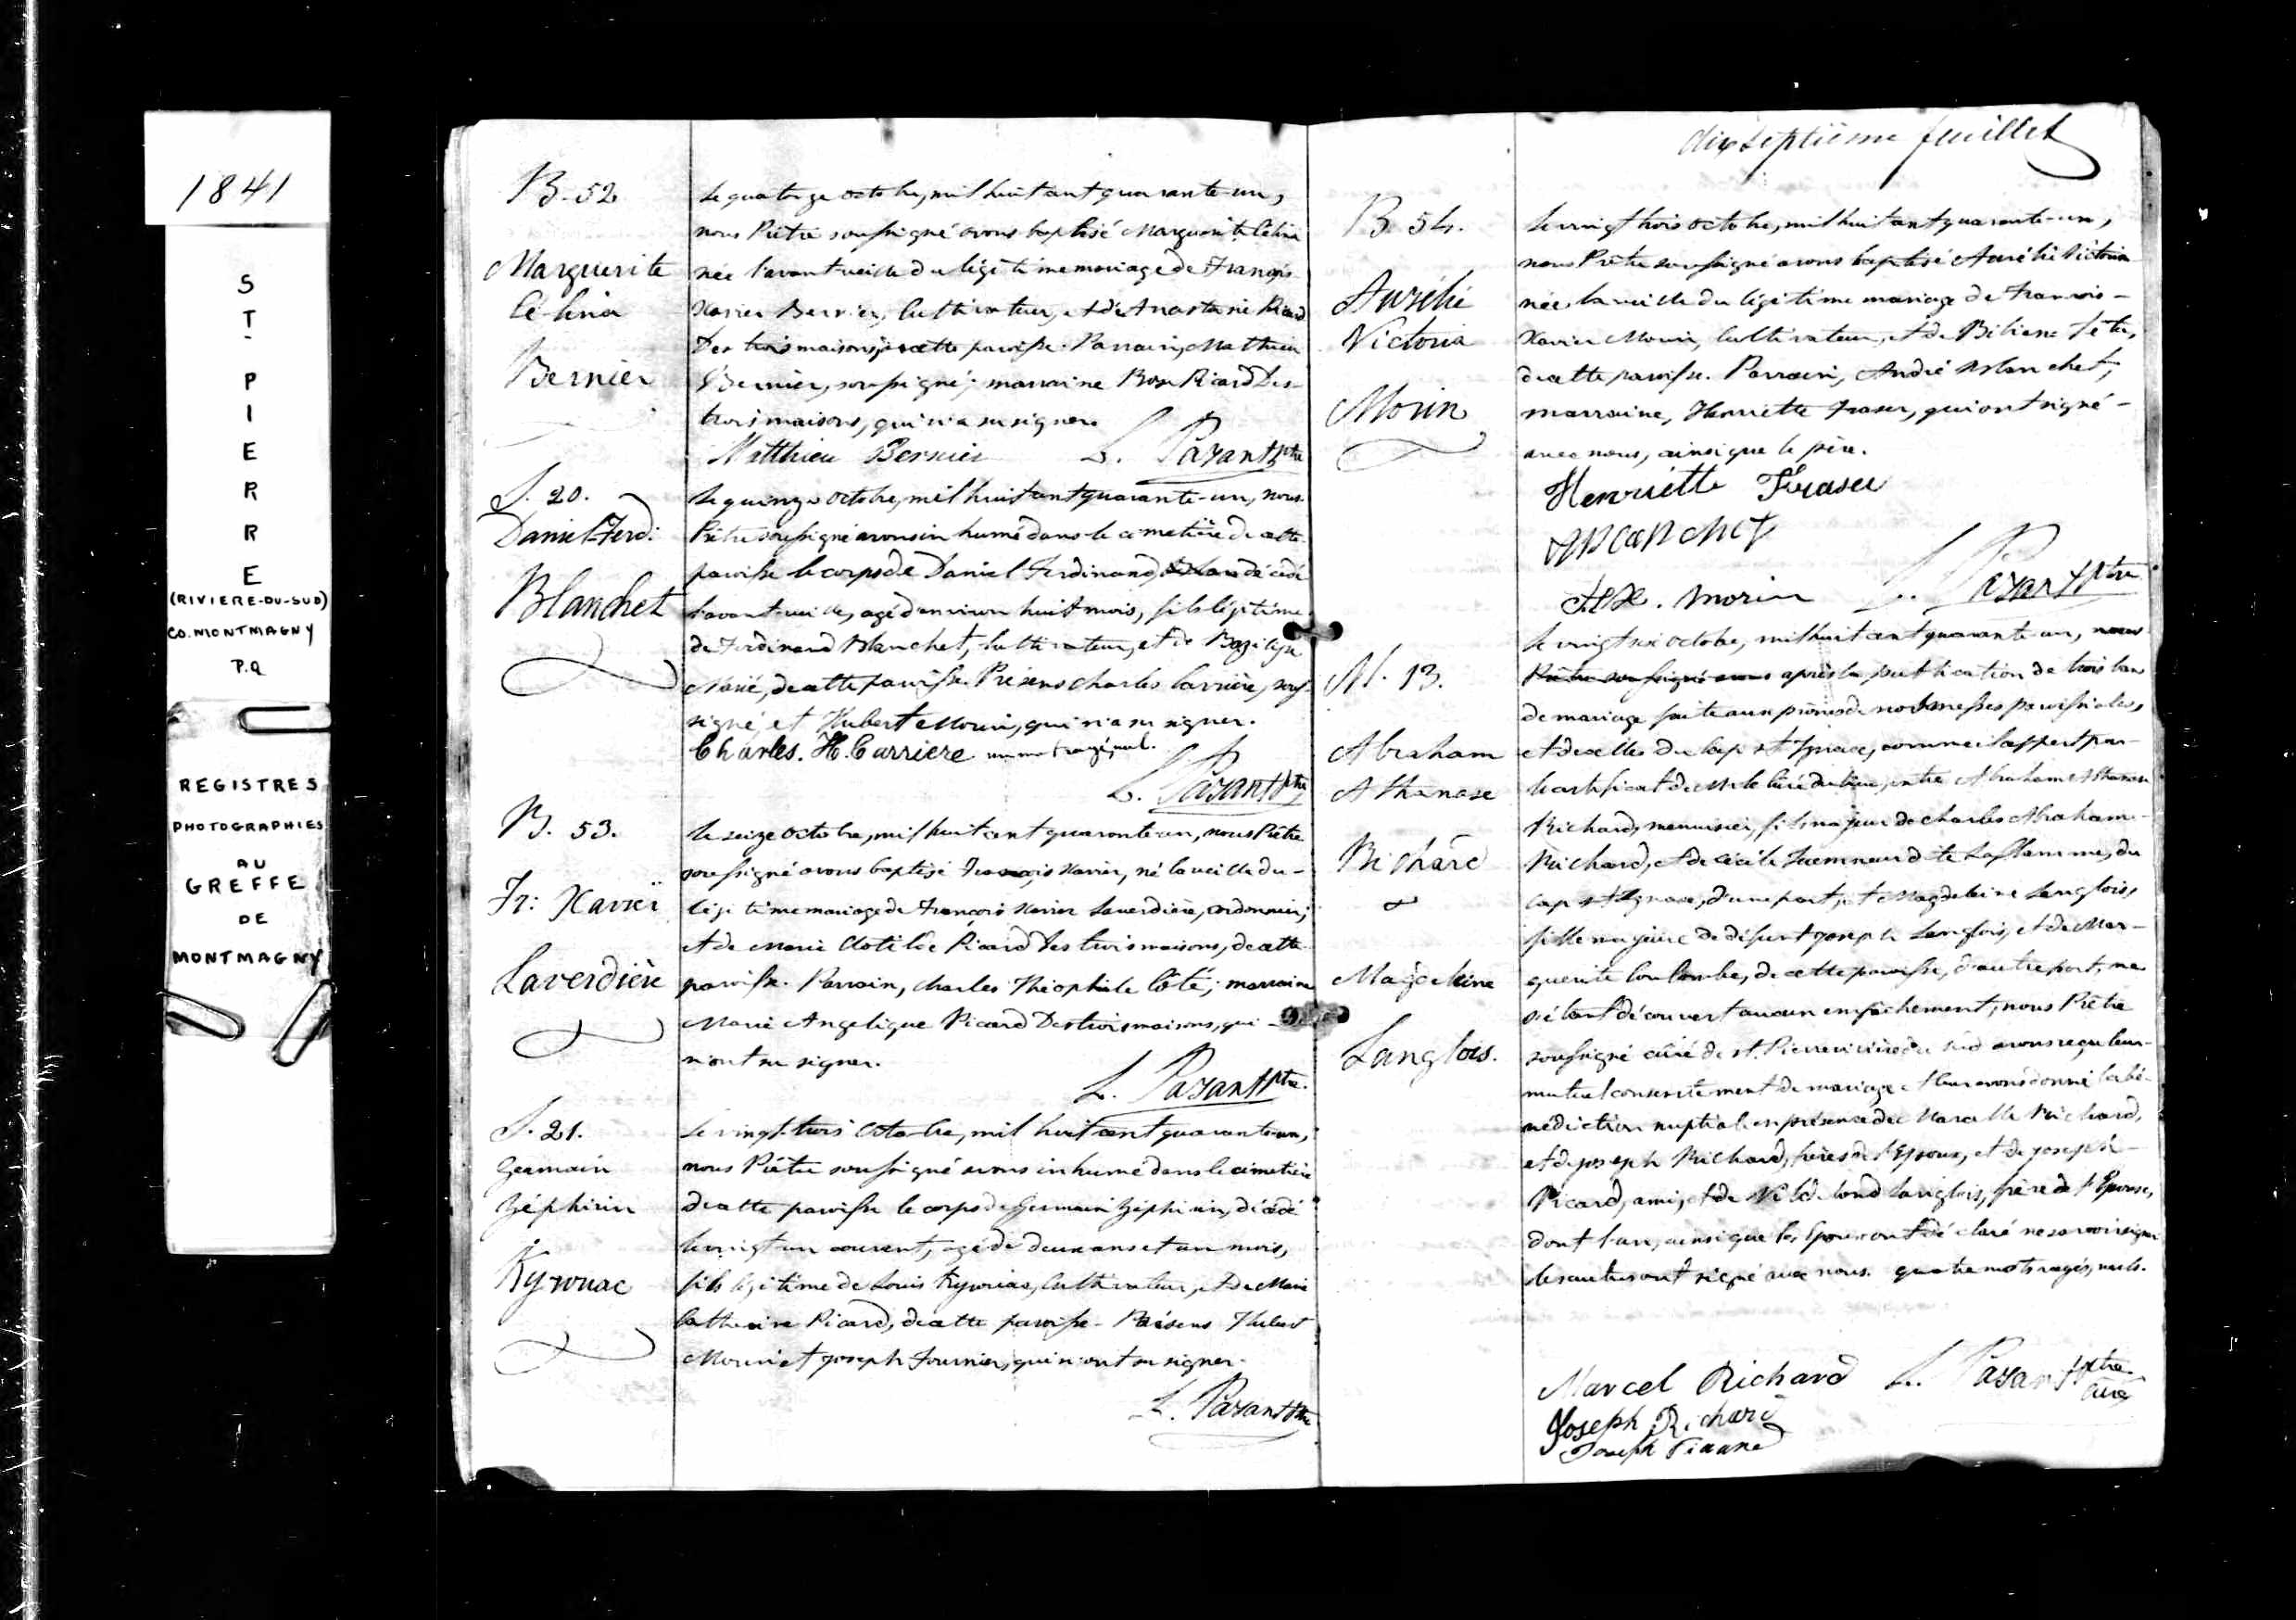 1841
ST. PIERRE
(RIVIERE-DU-SUD)
CO. MONTMAGNY
P.Q
REGISTRES
PHOTOGRAPHIES
AU
GREFFE
DE
MONTMAGNY
B-52
Marguerite
Célina
Bernier
Le quatorze octobre, mil huit cent quarante-un,
nous Prêtre soussigné avons baptisé Marguerite Célina
née l'avant veille du légitime mariage de François
Xavier Bernier, cultivateur, et de Anastasie Picard
Des trois maisons, de cette paroisse. Parrain, Mathieu
Bernier, soussigné; marraine Rose Picard Des-
trois maisons, qui n'a su signer.
Matthieu Bernier L. Parant Ptre
S. 20.
Daniel-Ferd:
Blanchet
Le quinze octobre, mil huit cent quarante-un, nous
Prêtre soussigné avons inhumé dans le cimetière de cette
paroisse le corps de Daniel Ferdinand, décédé
l'avant veille, agé d'environ huit mois, fils légitime
de Ferdinand Blanchet, cultivateur, et de
Morié, de cette paroisse. Présens Charles Carrière, sous-
signé, et Hubert Morin, qui n'a su signer.
Charles. H. Carriere un mot rayé, nul.
L. Parant Ptre
B. 53.
Fr: Xavier
Laverdière
Le seize octobre, mil huit cent quarante un, nous Prêtre
soussigné avons baptisé François Xavier, né la veille du-
légitime mariage de François Xavier Laverdière, cordonnier,
et de Marie Clotilde Picard Des trois maisons, de cette
paroisse. Parrain, Charles Théophile Côté; marraine
Marie Angelique Picard Des trois maisons, qui -
n'ont su signer.
L. Parant Ptre.
S. 21.
Germain
Zéphirin
Kyrouac
Le vingt-trois octobre, mil huit cent quarante un,
nous Prêtre soussigné avons inhumé dans le cimetière
de cette paroisse le corps de Germain Zéphirin, décédé
le vingt un courent, agé de deux ans et un mois,
fils légitime de Louis Kyrouac, cultivateur, et De Marie
Catherine Picard, de cette paroisse. Présens Hubert
Morin et Joseph Fournier, qui n'ont su signer.
L. Parant Ptre
dix septième feuillet
B. 54.
Aurélie
Victoria
Morin
Le vingt trois octobre, mil huit cent quarante-un,
nous Prêtre soussigné avons baptisé Aurélie Victoria
née la veille du légitime mariage de François-
Xavier Morin, cultivateur, et de Bibiane Têtu,
de cette paroisse. Parrain, André Blanchet;
marraine, Henriette Fraser, qui ont signé-
avec nous, ainsi que le père.
Henriette Fraser
A Blanchet
F. X. Morin L. Parant Ptre
M. 13.
Abraham
Athanase
Richard
&
Magdeleine
Langlois.
Le vingt six octobre, mil huit cent quarante un, nous
Prêtre soussigné avons après la publication de trois bans
de mariage faite aux prônes de nos messes paroissiales,
et de celles du Cap St Ignace, comme il appert par-
le certificat de Mr le Curé du lieu, entre Abraham Athanase
Richard, menuisier, fils majeur de Charles Abraham-
Richard, et de Cécile Quemneur dite Laflamme, du
Cap St Ignace, d'une part; et Magdeleine Langlois,
fille majeure de défunt Joseph Langlois, et de Mar-
guerite Coulombe, de cette paroisse, d'autre part, ne
s'étant découvert aucun empêchement, nous Prêtre
soussigné curé de St. Pierre rivière du Sud avons reçu leur-
mutuel consentement de mariage et leur avons donné la bé-
nédiction nuptiale en présence de Marcelle Richard,
et de Joseph Richard, frères de l'Epoux, et de Joseph-
Picard, ami, et de Langlois, frère de l'Epouse,
dont l'un, ainsi que les Epoux ont déclaré ne savoir signer
les autres ont signé avec nous. quatre mots rayés, nuls.
Marcel Richard L. Parant Ptre
curé
Joseph Richard
Joseph Picard